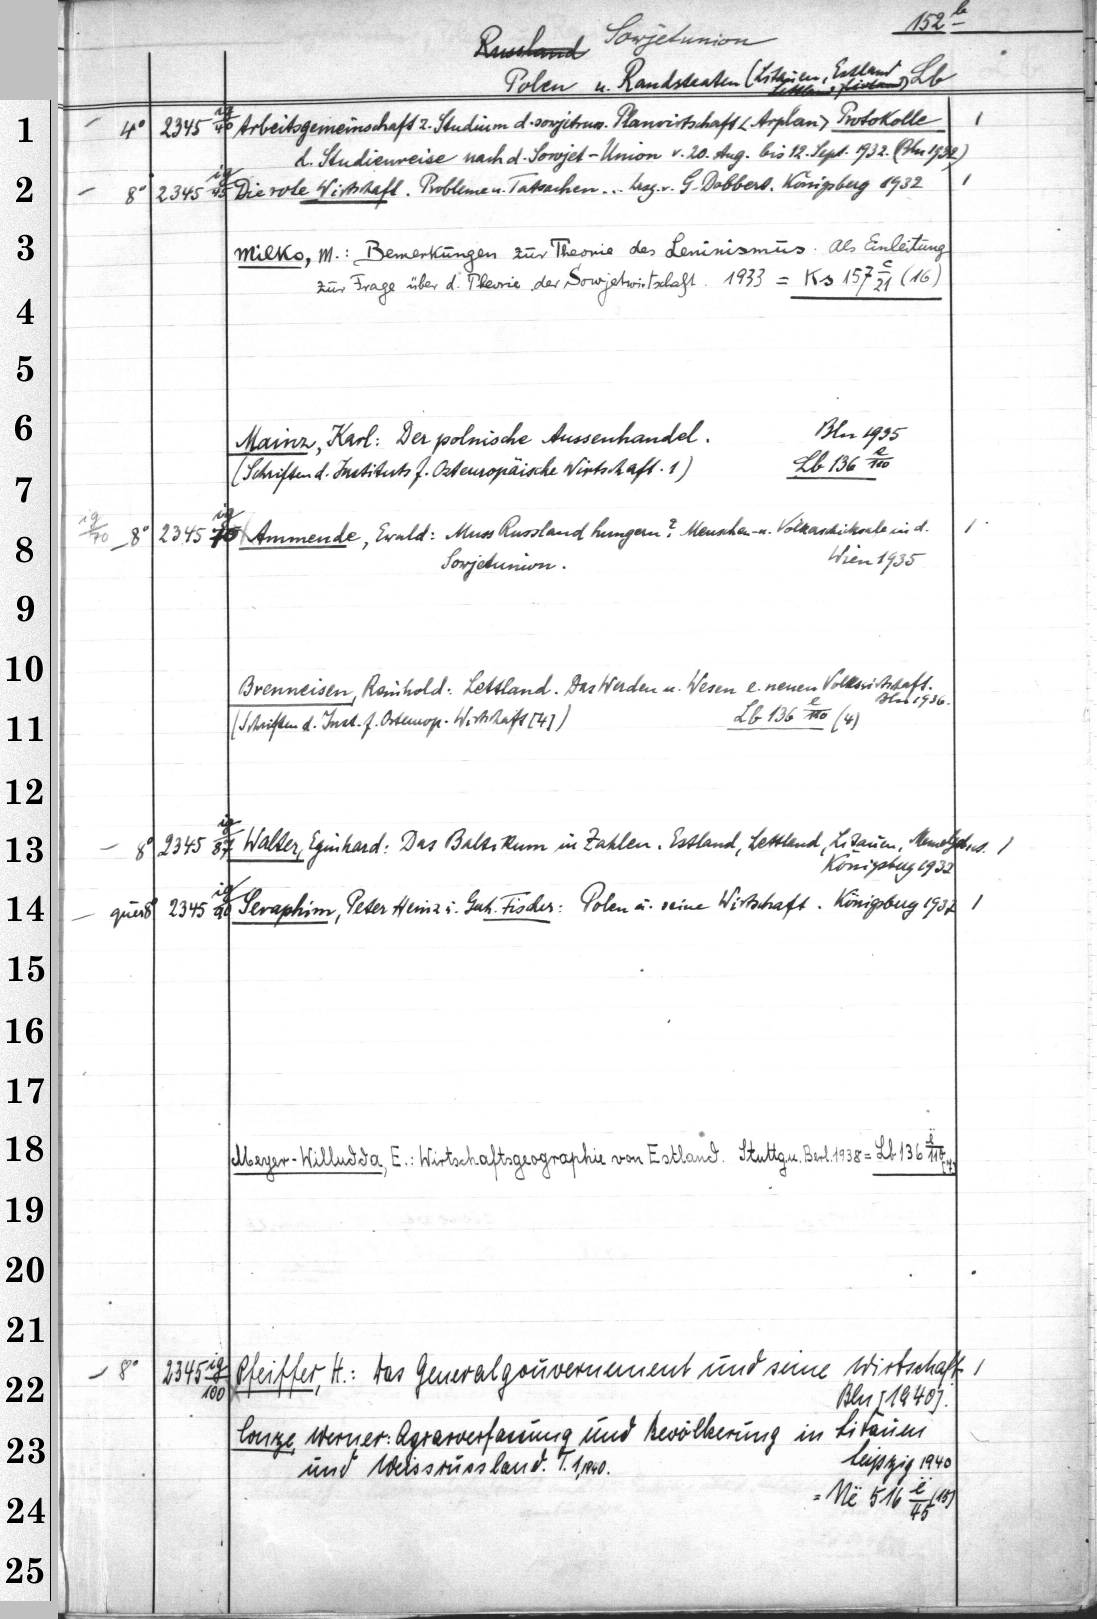 152 b
Russland Sowjetunion
Polen u. Randstaaten (Litauen, Estland Lb
1 4° 2345 ig/40 Arbeitsgemeinschaft z. Studium d. sowjetruss. Planwirtschaft <Arplan> Protokolle 1
d. Studienreise nach d. Sowjet-Union v. 20. Aug. bis 12. Sept. 1932. (Bln 1932)
2 8° 2345 ig/45 Die rote Wirtschaft. Probleme u. Tatsachen... hrsg. v. G. Dobbert. Königsberg 1932 1
3 Milko, M.: Bemerkungen zur Theorie des Leninismus. als Einleitung
zur Frage über d. Theorie der Sowjetwirtschaft. 1933 = Ks 157 c/21 (16)
4
5
6 Mainz, Karl: Der polnische Aussenhandel. Bln 1935
(Schriften d. Instituts f. Osteuropäische Wirtschaft. 1) Lb 136 e/110
7
8 ig/70 8° 2345 ig/75 Ammende, Ewald: Muss Russland hungern? Menschen- u. Völkerschicksale in d. 1
Sowjetunion. Wien 1935
9
10 Brenneisen, Reinhold: Lettland. Das Werden u. Wesen e. neuen Volkswirtschaft.
Bln 1936.
11 (Schriften d. Inst. f. Osteurop. Wirtschaft [4]) Lb 136 e/110 (4)
12
13 8° 2345 ig/87 Walter, Eginhard: Das Baltikum in Zahlen. Estland, Lettland, Litauen, Memelgebiet. 1
Königsberg 1932
14 quer8° 2345 ig/90 Seraphim, Peter Heinz u. Gerh. Fischer: Polen u. seine Wirtschaft. Königsberg 1937 1
15
16
17
18 Meyer-Willudda, E.: Wirtschaftsgeographie von Estland. Stuttg u. Berl. 1938 = Lb 136 ë/110 (7)
19
20
21
22 8° 2345 ig/100 Pfeiffer, H.: Das Generalgouvernement und seine Wirtschaft. 1
Bln [1940].
23 Conze, Werner: Agrarverfassung und Bevölkerung in Litauen
und Weissrussland. T. 1, 1940. Leipzig 1940
24 = Në 516 ë/45 (15)
25